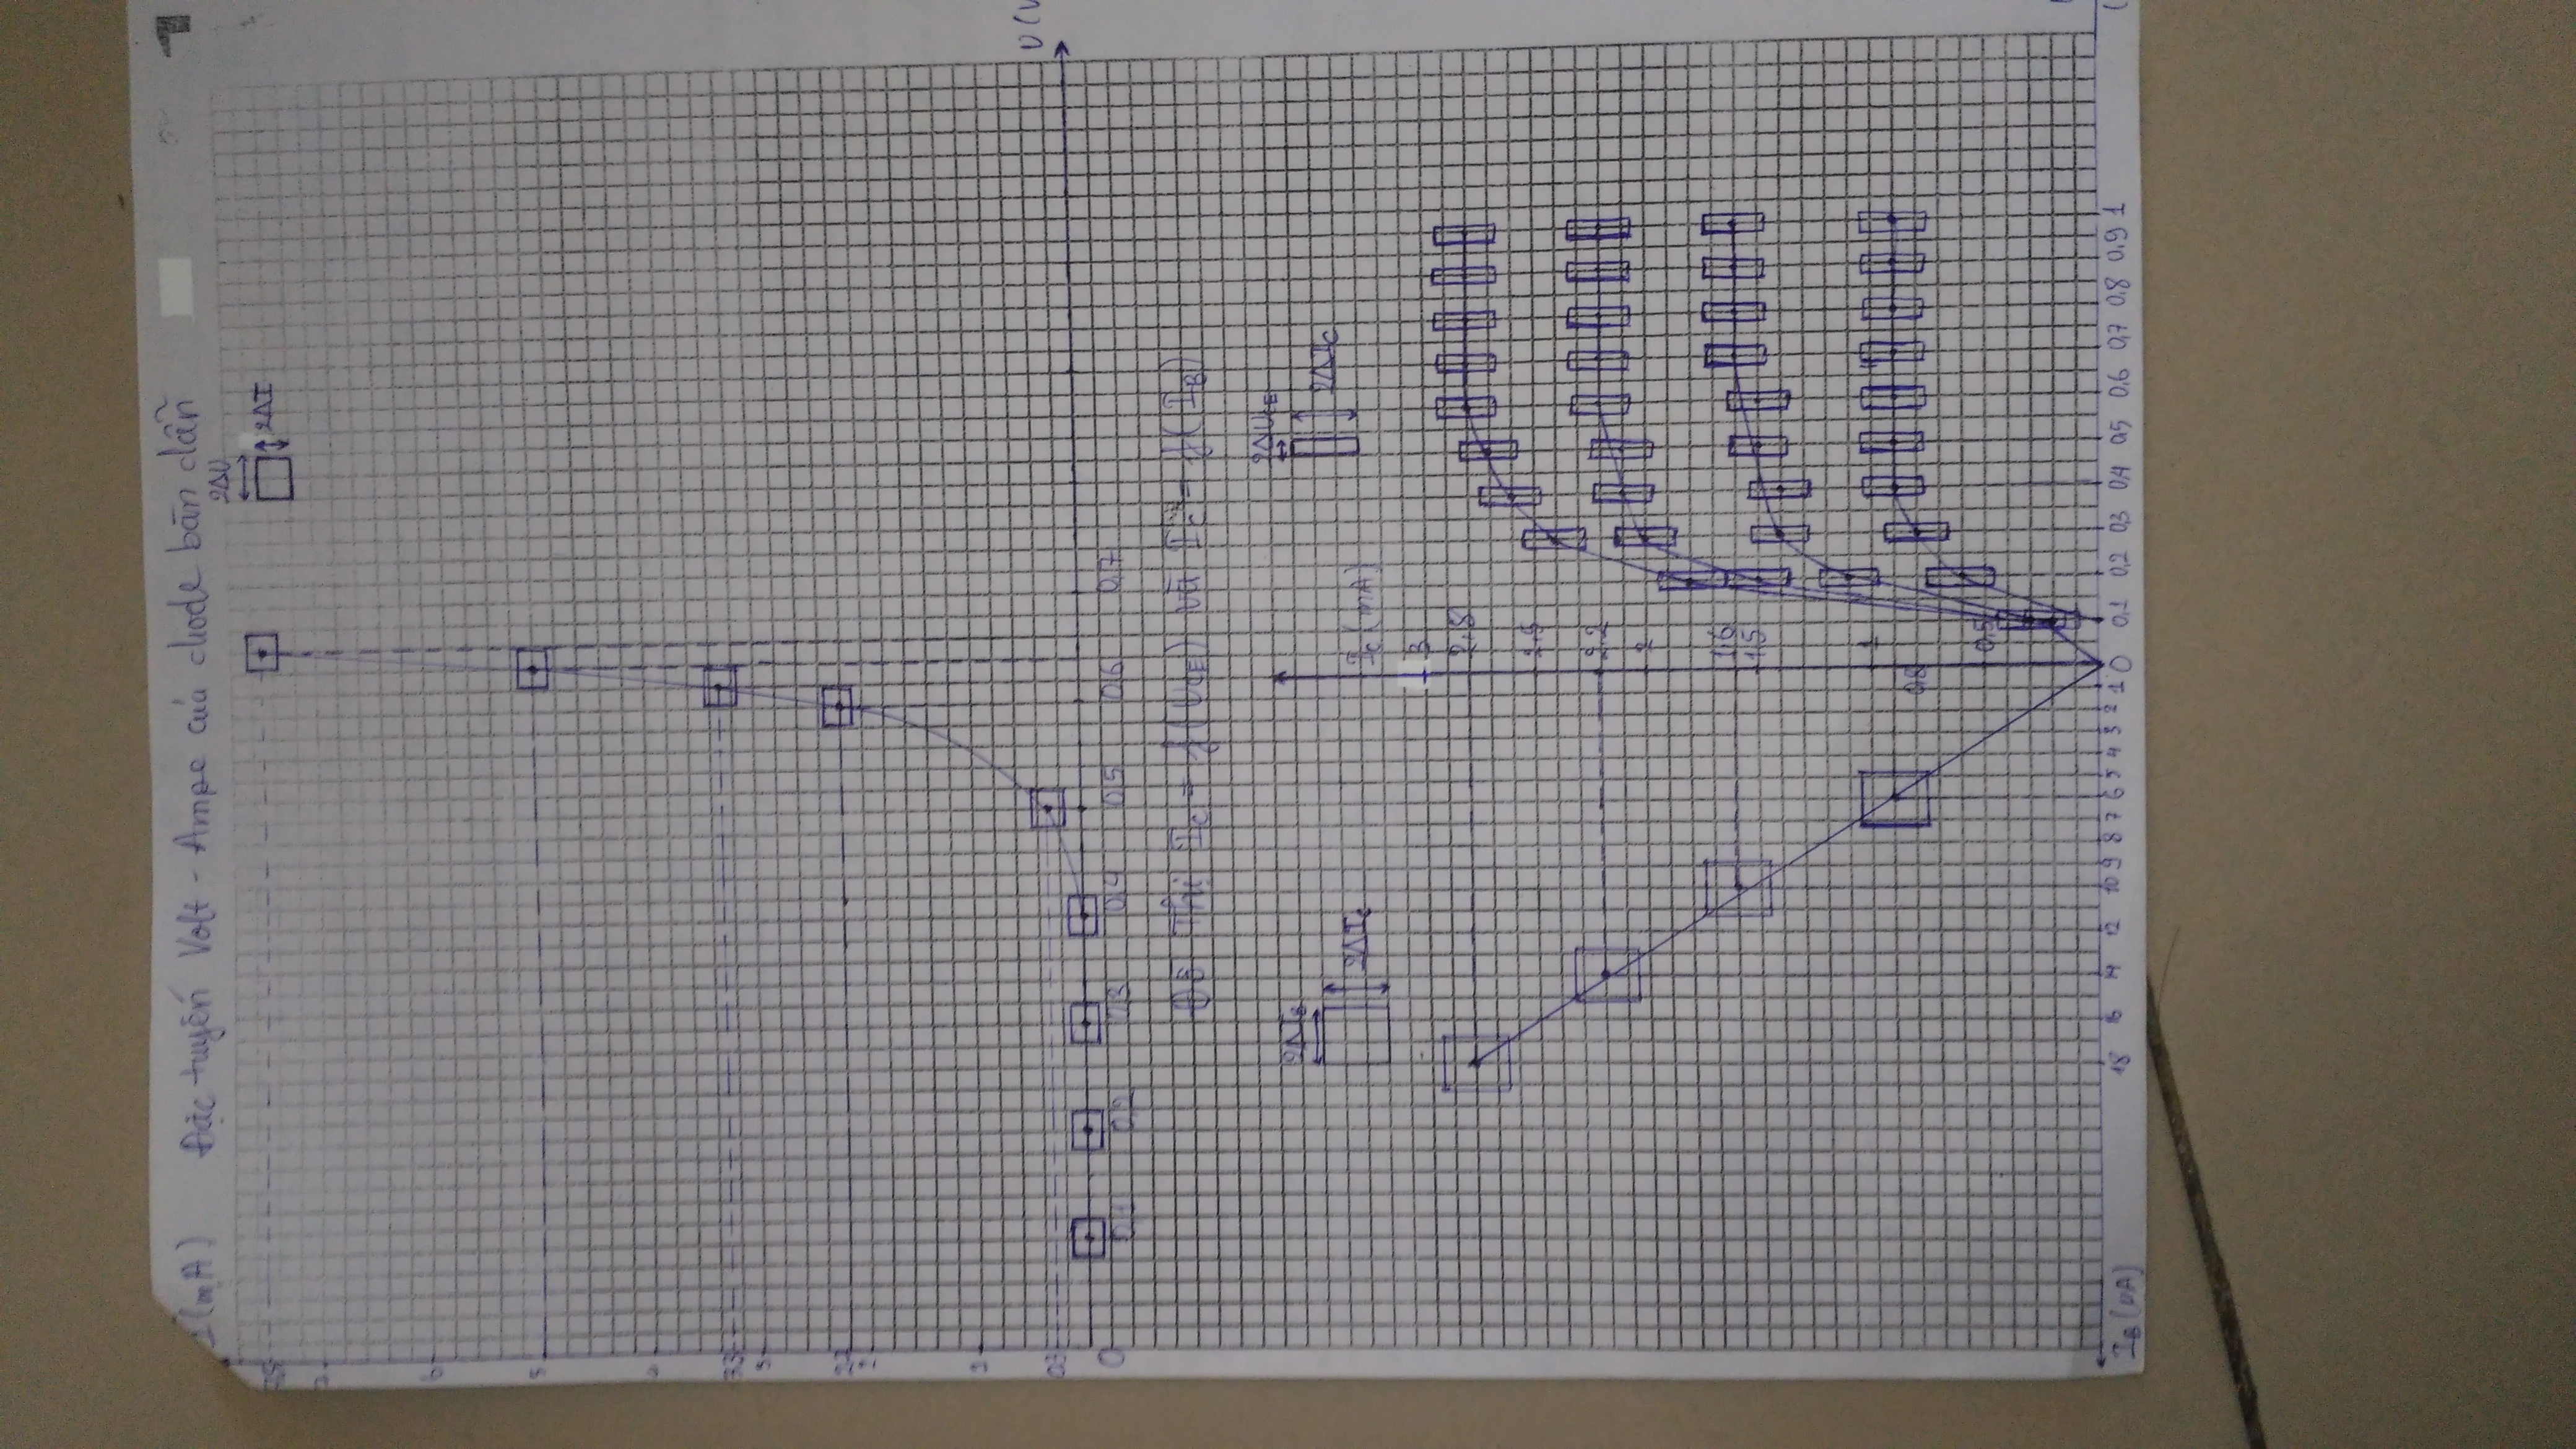 I (mA) Đặc tuyến Volt - Ampe của diode bán dẫn
2ΔU
2ΔI
7,5
7
6
5
4
3,3
3
2
1
0,3
U (V
0
0,1 0,2 0,3 0,4 0,5 0,6 0,7
Đồ Thị I_C = f(U_CE) và I_C = f(I_B)
2ΔU_CE
2ΔI_B
2ΔI_C
2ΔI_C
I_C (mA)
3
2,8
2,5
2,2
2
1,6
1,5
1
0,8
0,5
I_B (µA) 18 16 14 12 10 9 8 7 6 5 4 3 2 1 0 0,1 0,2 0,3 0,4 0,5 0,6 0,7 0,8 0,9 1